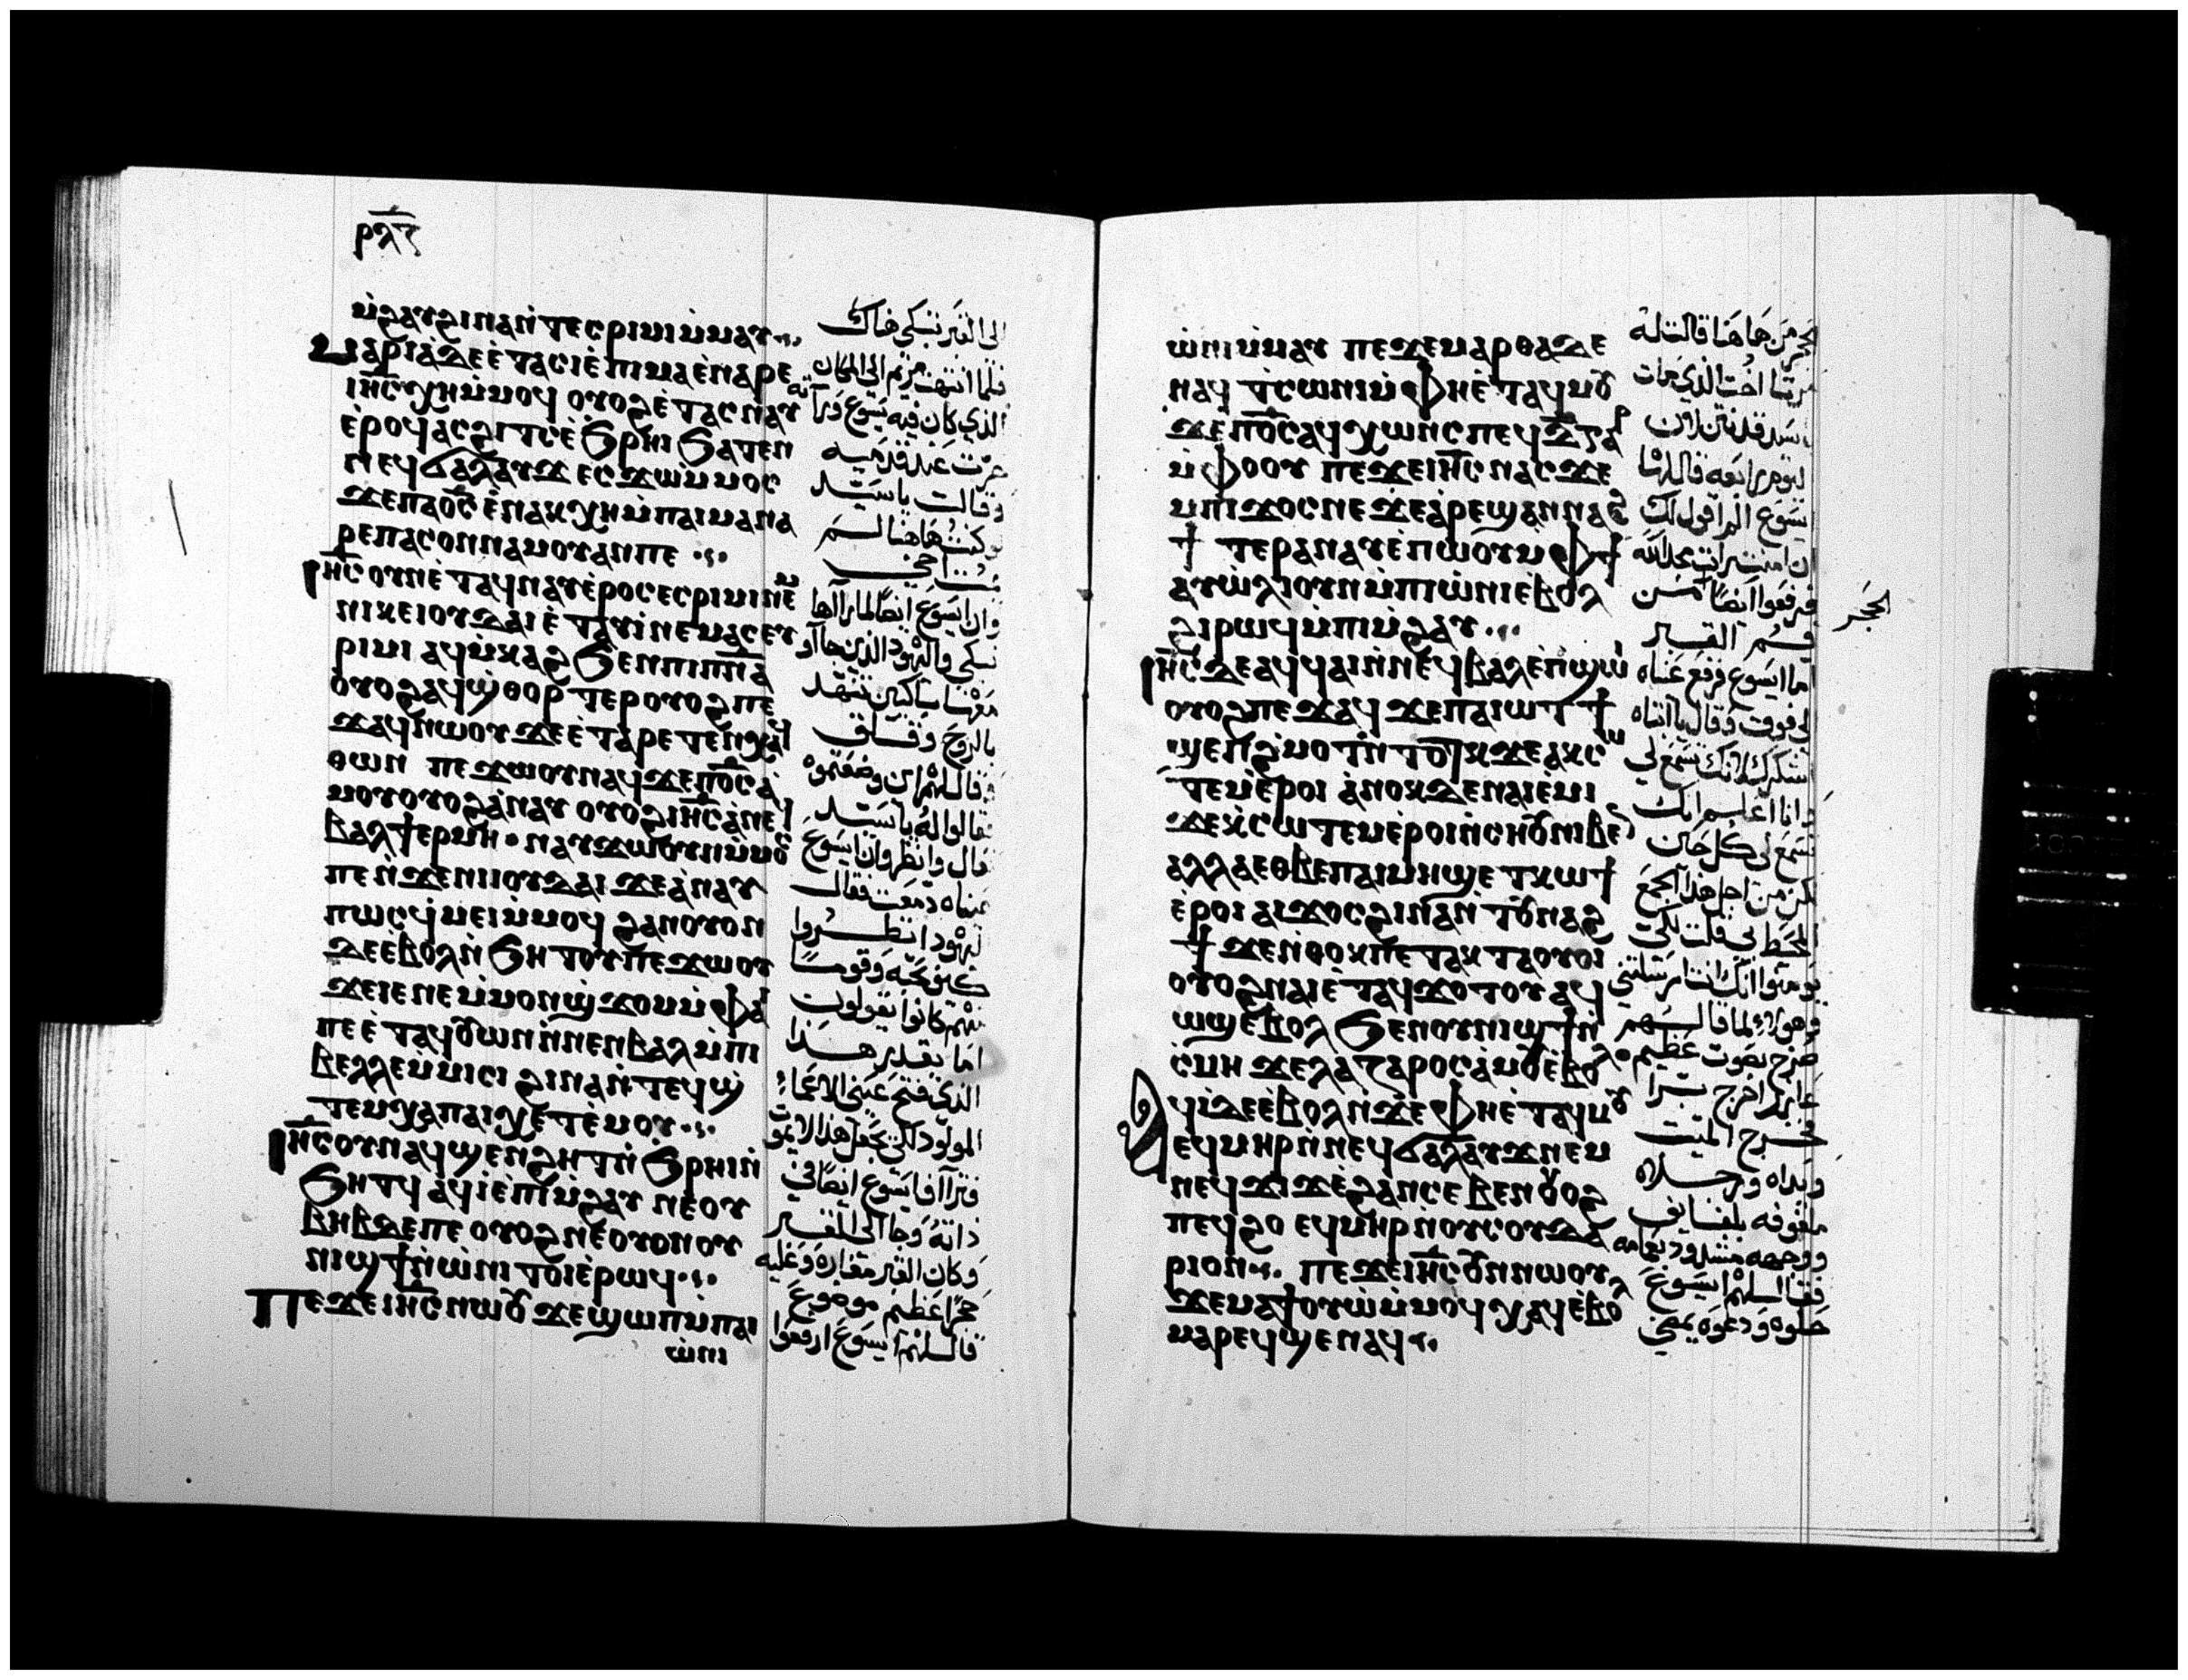 ⲣⲗ̅ⲍ
ⲙ̀ϩⲁⲩϩⲓⲛⲁⲛ̀ⲧⲉⲥⲣⲓⲙⲓⲙ̀ⲙⲁⲩ
ⲙⲁⲣⲓⲁⲇⲉⲉ̀ⲧⲁⲥⲓⲉ̀ⲡⲓⲙⲁⲉ̀ⲛⲁⲣⲉ
ⲓⲏ̅ⲥ̅ⲭⲏⲙ̀ⲙⲟϥ ⲟⲩⲟϩⲉ̀ⲧⲁⲥⲛⲁⲩ
ⲉ̀ⲣⲟϥⲁⲥϩⲓⲧⲥⲉ̀ϧⲣⲏⲓϧⲁⲧⲉⲛ
ⲛⲉϥϭⲁⲗⲁⲩϫ ⲉⲥϫⲱⲙ̀ⲙⲟⲥ
ϫⲉⲡⲁⲟ̅ⲥ̅ ⲉ̀ⲛⲁⲕⲭⲏⲙ̀ⲡⲁⲓⲙⲁⲛⲁ
ⲣⲉⲡⲁⲥⲟⲛⲛⲁⲙⲟⲩⲁⲛⲡⲉ
ⲓⲏ̅ⲥ̅ⲟⲩⲛⲉ̀ⲧⲁϥⲛⲁⲩⲉ̀ⲣⲟⲥⲉⲥⲣⲓⲙⲓⲛⲉⲙ
ⲛⲓⲕⲉⲓⲟⲩⲇⲁⲓⲉ̀ⲧⲁⲩⲓ̀ⲛⲉⲙⲁⲥⲉⲩ
ⲣⲓⲙⲓ ⲁϥⲙ̀ⲕⲁϩϧⲉⲛⲡⲓⲡ̅ⲛ̅ⲁ
ⲟⲩⲟϩⲁϥϣ̀ⲑⲟⲣⲧⲉⲣⲟⲩⲟϩⲡⲉ
ϫⲁϥⲛⲱⲟⲩϫⲉⲉ̀ⲧⲁⲣⲉⲧⲉⲛⲭⲁϥ
ⲑⲱⲛ ⲡⲉϫⲱⲟⲩⲛⲁϥϫⲉⲡⲟ̅ⲥ̅ⲁ̀
ⲙⲟⲩⲟⲩⲟϩⲁ̀ⲛⲁⲩ ⲟⲩⲟϩⲓⲏ̅ⲥ̅ⲁ̀ⲛⲉϥ
ⲃⲁⲗϯⲉⲣⲙⲏ ⲛⲁⲩϫⲱⲟⲩⲛⲙ̀ⲙⲟⲥ
ⲡⲉⲛ̀ϫⲉⲛⲓⲓⲟⲩⲇⲁⲓ ϫⲉⲁ̀ⲛⲁⲩ
ⲡⲱⲥϥ̀ⲙⲉⲓⲙ̀ⲙⲟϥ ϩⲁⲛⲟⲩⲟⲛ
ⲇⲉⲉ̀ⲃⲟⲗⲛ̀ϧⲏⲧⲟⲩⲡⲉϫⲱⲟⲩ
ϫⲉⲓⲉⲛⲉⲙ̀ⲙⲟⲛϣ̀ϫⲟⲙⲙ̀ⲫⲁⲓ
ⲡⲉⲉ̀ⲧⲁϥⲟⲩⲱⲛⲛ̀ⲛⲉⲛⲃⲁⲗⲙ̀ⲡⲓ
ⲃⲉⲗⲗⲉⲙ̀ⲙⲓⲥⲓ ϩⲓⲛⲁⲛ̀ⲧⲉϥϣ̀
ⲧⲉⲙⲭⲁⲡⲁⲓⲭⲉⲧⲉ̀ⲙⲟⲩ
ⲓⲏ̅ⲥ̅ⲟⲩⲛⲁϥϣⲉⲛϩⲏⲧⲛ̀ϧⲣⲏⲓⲛ̀
ϧⲏⲧϥ ⲁϥⲓ̀ⲉ̀ⲡⲓⲙ̀ϩⲁⲩ ⲛⲉⲟⲩ
ⲃⲏⲃⲇⲉⲡⲉ ⲟⲩⲟϩⲛⲉⲟⲩⲟⲛⲟⲩ
ⲛⲓϣϯⲛ̀ⲱ̀ⲛⲓ ⲧⲟⲓⲉ̀ⲣⲱϥ
ⲡⲉϫⲉⲓⲏ̅ⲥ̅ⲛⲱⲟⲩ ϫⲉϣⲱⲡⲙ̀ⲡⲁⲓ
ⲱ̀ⲛⲓ
الى القبر تبكي هناك
فلما انتهت مريم الى المكان
الذي كان فيه يسوع ورأته
خرت عند قدميه
وقالت يا سيد
لو كنت هاهنا لم
يمت اخي
وان ايسوع ايضا لما رآها
تبكي واليهود الذين جاؤ
معها باكين تنهد
بالروح وقلق
وقال لهم اين وضعتموه
فقالوا له يا سيد
تعال وانظر وان ايسوع
عيناه دمعت فقال
اليهود انظروا
كيف يحبه وقوما
منهم كانوا يقولون
اما يقدر هذا
الذي فتح عيني الاعما
المولود ان يجعل هذا لا يموت
فترااف ايسوع ايضا في
ذاته وجا الى القبر
وكان القبر مغاره وعليه
حجرا عظيم موضوع
قال لهم ايسوع ارفعوا
ⲱ̀ⲛⲓⲙ̀ⲙⲁⲩ ⲡⲉϫⲉⲙⲁⲣⲑⲁϫⲉ
ⲛⲁϥ ⲧ̀ⲥⲱⲛⲓⲙ̀ⲫⲏⲉ̀ⲧⲁϥⲙⲟⲩ
ϫⲉⲡⲟ̅ⲥ̅ⲁϥⲭⲱⲛⲥⲡⲉϥⲇ̅ⲅⲁⲣ
ⲙ̀ⲫⲟⲟⲩ ⲡⲉϫⲉⲓⲏ̅ⲥ̅ ⲛⲁⲥϫⲉ
ⲙⲡⲓϫⲟⲥⲛⲉ ϫⲉⲁ̀ⲣⲉϣⲁⲛⲛⲁϩ
ϯ ⲧⲉⲣⲁⲛⲁⲩⲉ̀ⲡⲱⲟⲩⲙ̀ⲫϯ
ⲁⲩⲱ̀ⲗⲓⲟⲩⲛⲙ̀ⲡⲓⲱ̀ⲛⲓⲉ̀ⲃⲟⲗ
ϩⲓⲣⲱϥⲙ̀ⲡⲓⲙ̀ϩⲁⲩ
ⲓⲏ̅ⲥ̅ⲇⲉⲁϥϥⲁⲓⲛ̀ⲛⲉϥⲃⲁⲗⲉ̀ⲡϣⲱⲓ
ⲟⲩⲟϩⲡⲉϫⲁϥ ϫⲉⲡⲁⲓⲱⲧ ϯ
ϣⲉⲡϩ̀ⲙⲟⲧⲛ̀ⲧⲟⲧⲕϫⲉⲁⲕⲥⲱ
ⲧⲉⲙⲉ̀ⲣⲟⲓ ⲁ̀ⲛⲟⲕⲇⲉⲛⲁⲓⲉ̀ⲙⲓ
ϫⲉⲕ̀ⲥⲱⲧⲉⲙⲉ̀ⲣⲟⲓⲛ̀ⲥⲏⲟⲩⲛⲓⲃⲉⲛ
ⲁⲗⲗⲁⲉⲑⲃⲉⲡⲁⲓⲙⲏϣⲉ ⲧⲕⲱϯ
ⲉ̀ⲣⲟⲓ ⲁⲓϫⲟⲥϩⲓⲛⲁⲛ̀ⲧⲟⲩⲛⲁϩ
ϯ ϫⲉⲛ̀ⲑⲟⲕⲡⲉⲧⲁⲕⲧⲁⲟⲩⲟⲓ
ⲟⲩⲟϩⲛⲁⲓⲉ̀ⲧⲁϥϫⲟⲧⲟⲩ ⲁϥ
ⲱϣⲉⲃⲟⲗ ϧⲉⲛⲟⲩⲛⲓϣϯⲛ̀
ⲥ̀ⲙⲏ ϫⲉⲗⲁⲍⲁⲣⲟⲥⲁ̀ⲙⲟⲩⲉ̀ⲃⲟⲗ
ⲁϥⲓ̀ⲇⲉⲉ̀ⲃⲟⲗⲛ̀ϫⲉⲫⲏⲉ̀ⲧⲁϥⲙⲟⲩ
ⲉϥⲙⲏⲣⲛ̀ⲛⲉϥϭⲁⲗⲁⲩϫⲛⲉⲙ
ⲛⲉϥϫⲓϫⲉ̀ϩⲁⲛⲥⲉⲃⲉⲛⲟⲩⲟϩ
ⲡⲉϥϩⲟ ⲉϥⲙⲏⲣⲛ̀ⲟⲩⲥⲟⲩⲇⲁ
ⲣⲓⲟⲛ ⲡⲉϫⲉⲓⲏ̅ⲥ̅ⲟⲩⲛⲛⲱⲟⲩ
ϫⲉⲙⲁϯⲟⲩⲱ̀ⲙ̀ⲙⲟϥ ⲭⲁϥⲉ̀ⲃⲟⲗ
ⲙⲁⲣⲉϥϣⲉⲛⲁϥ
الحجر من هاهنا قالت له
مرتا اخت الذي مات
يا سيد قد نتن لان
اليوم رابعه قال لها
يسوع الم اقول لك
ان امنت رايت مجد الله
فرفعوا ايضا من
الحجر
فم القبر
اما ايسوع فرفع عيناه
الى فوق وقال يا ابتاه
اشكرك لانك تسمع لي
وانا اعلم انك
تسمع لي كل حين
لكن من اجل هذا الجمع
المحيط بي قلت لكي
يومنوا انك انت ارسلتني
وهولاء لما قالهم
صرخ بصوت عظيم
عازر اخرج برا
فخرج الميت
ويداه ورجلاه
ملفوفه بلفايف
ووجهه مشدود بعمامه
فقال لهم ايسوع
حلوه ودعوه يمضي